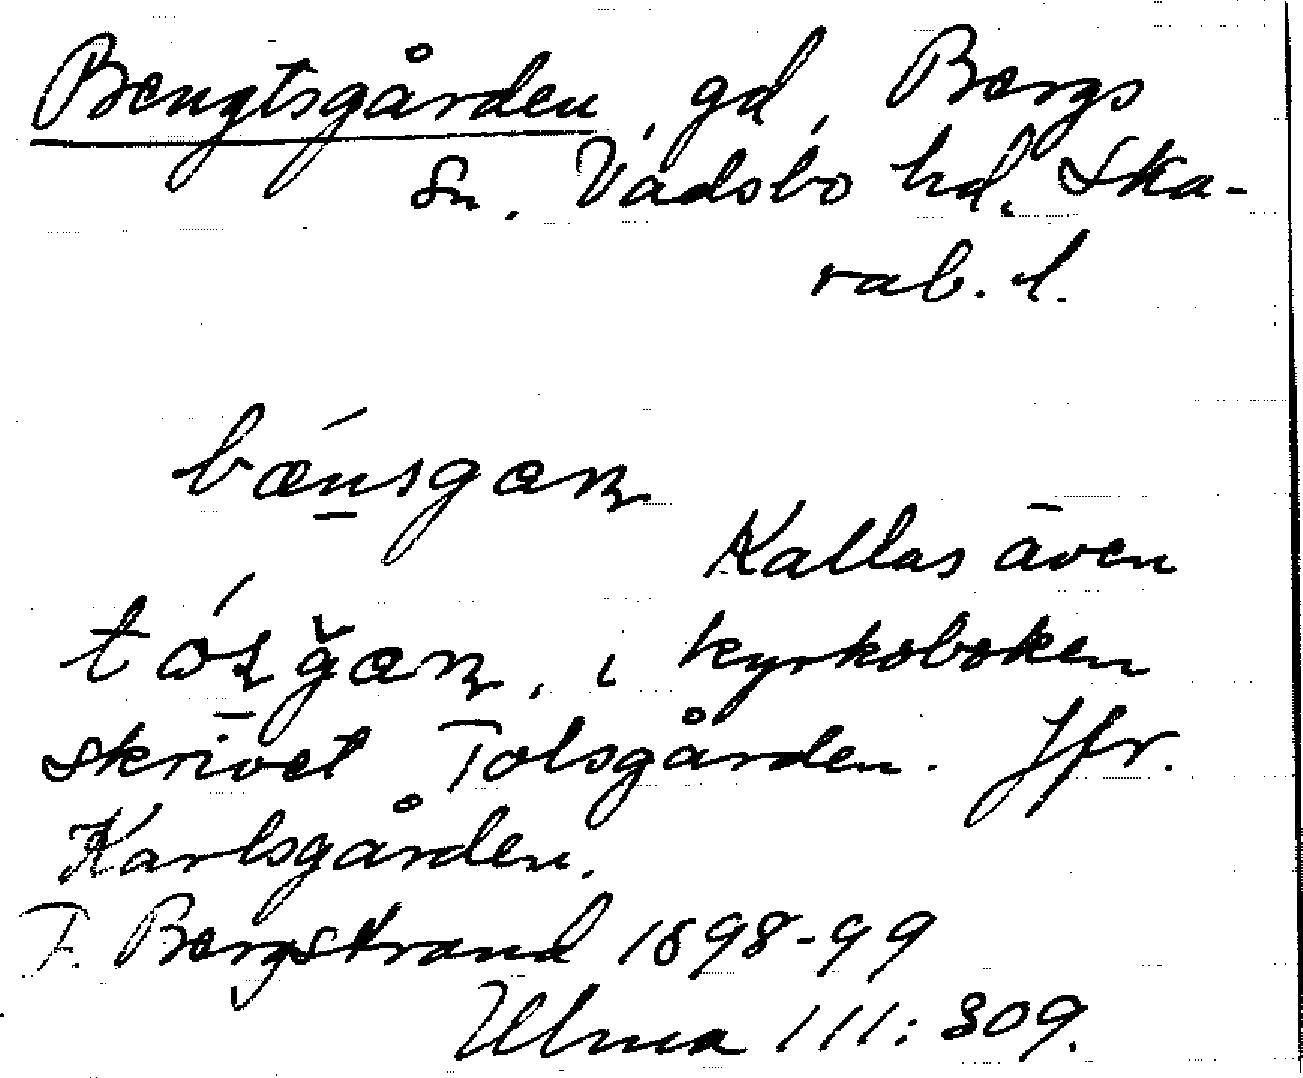 Bengtsgården, gd, Bergs
sn. Vadsbo hd. Ska-
rab. l.
Kallas även
i kyrkoboken
skrivet Tolsgården. Jfr.
Karlsgården.
F. Bergstrand 1898-99
Ulma 111:309.